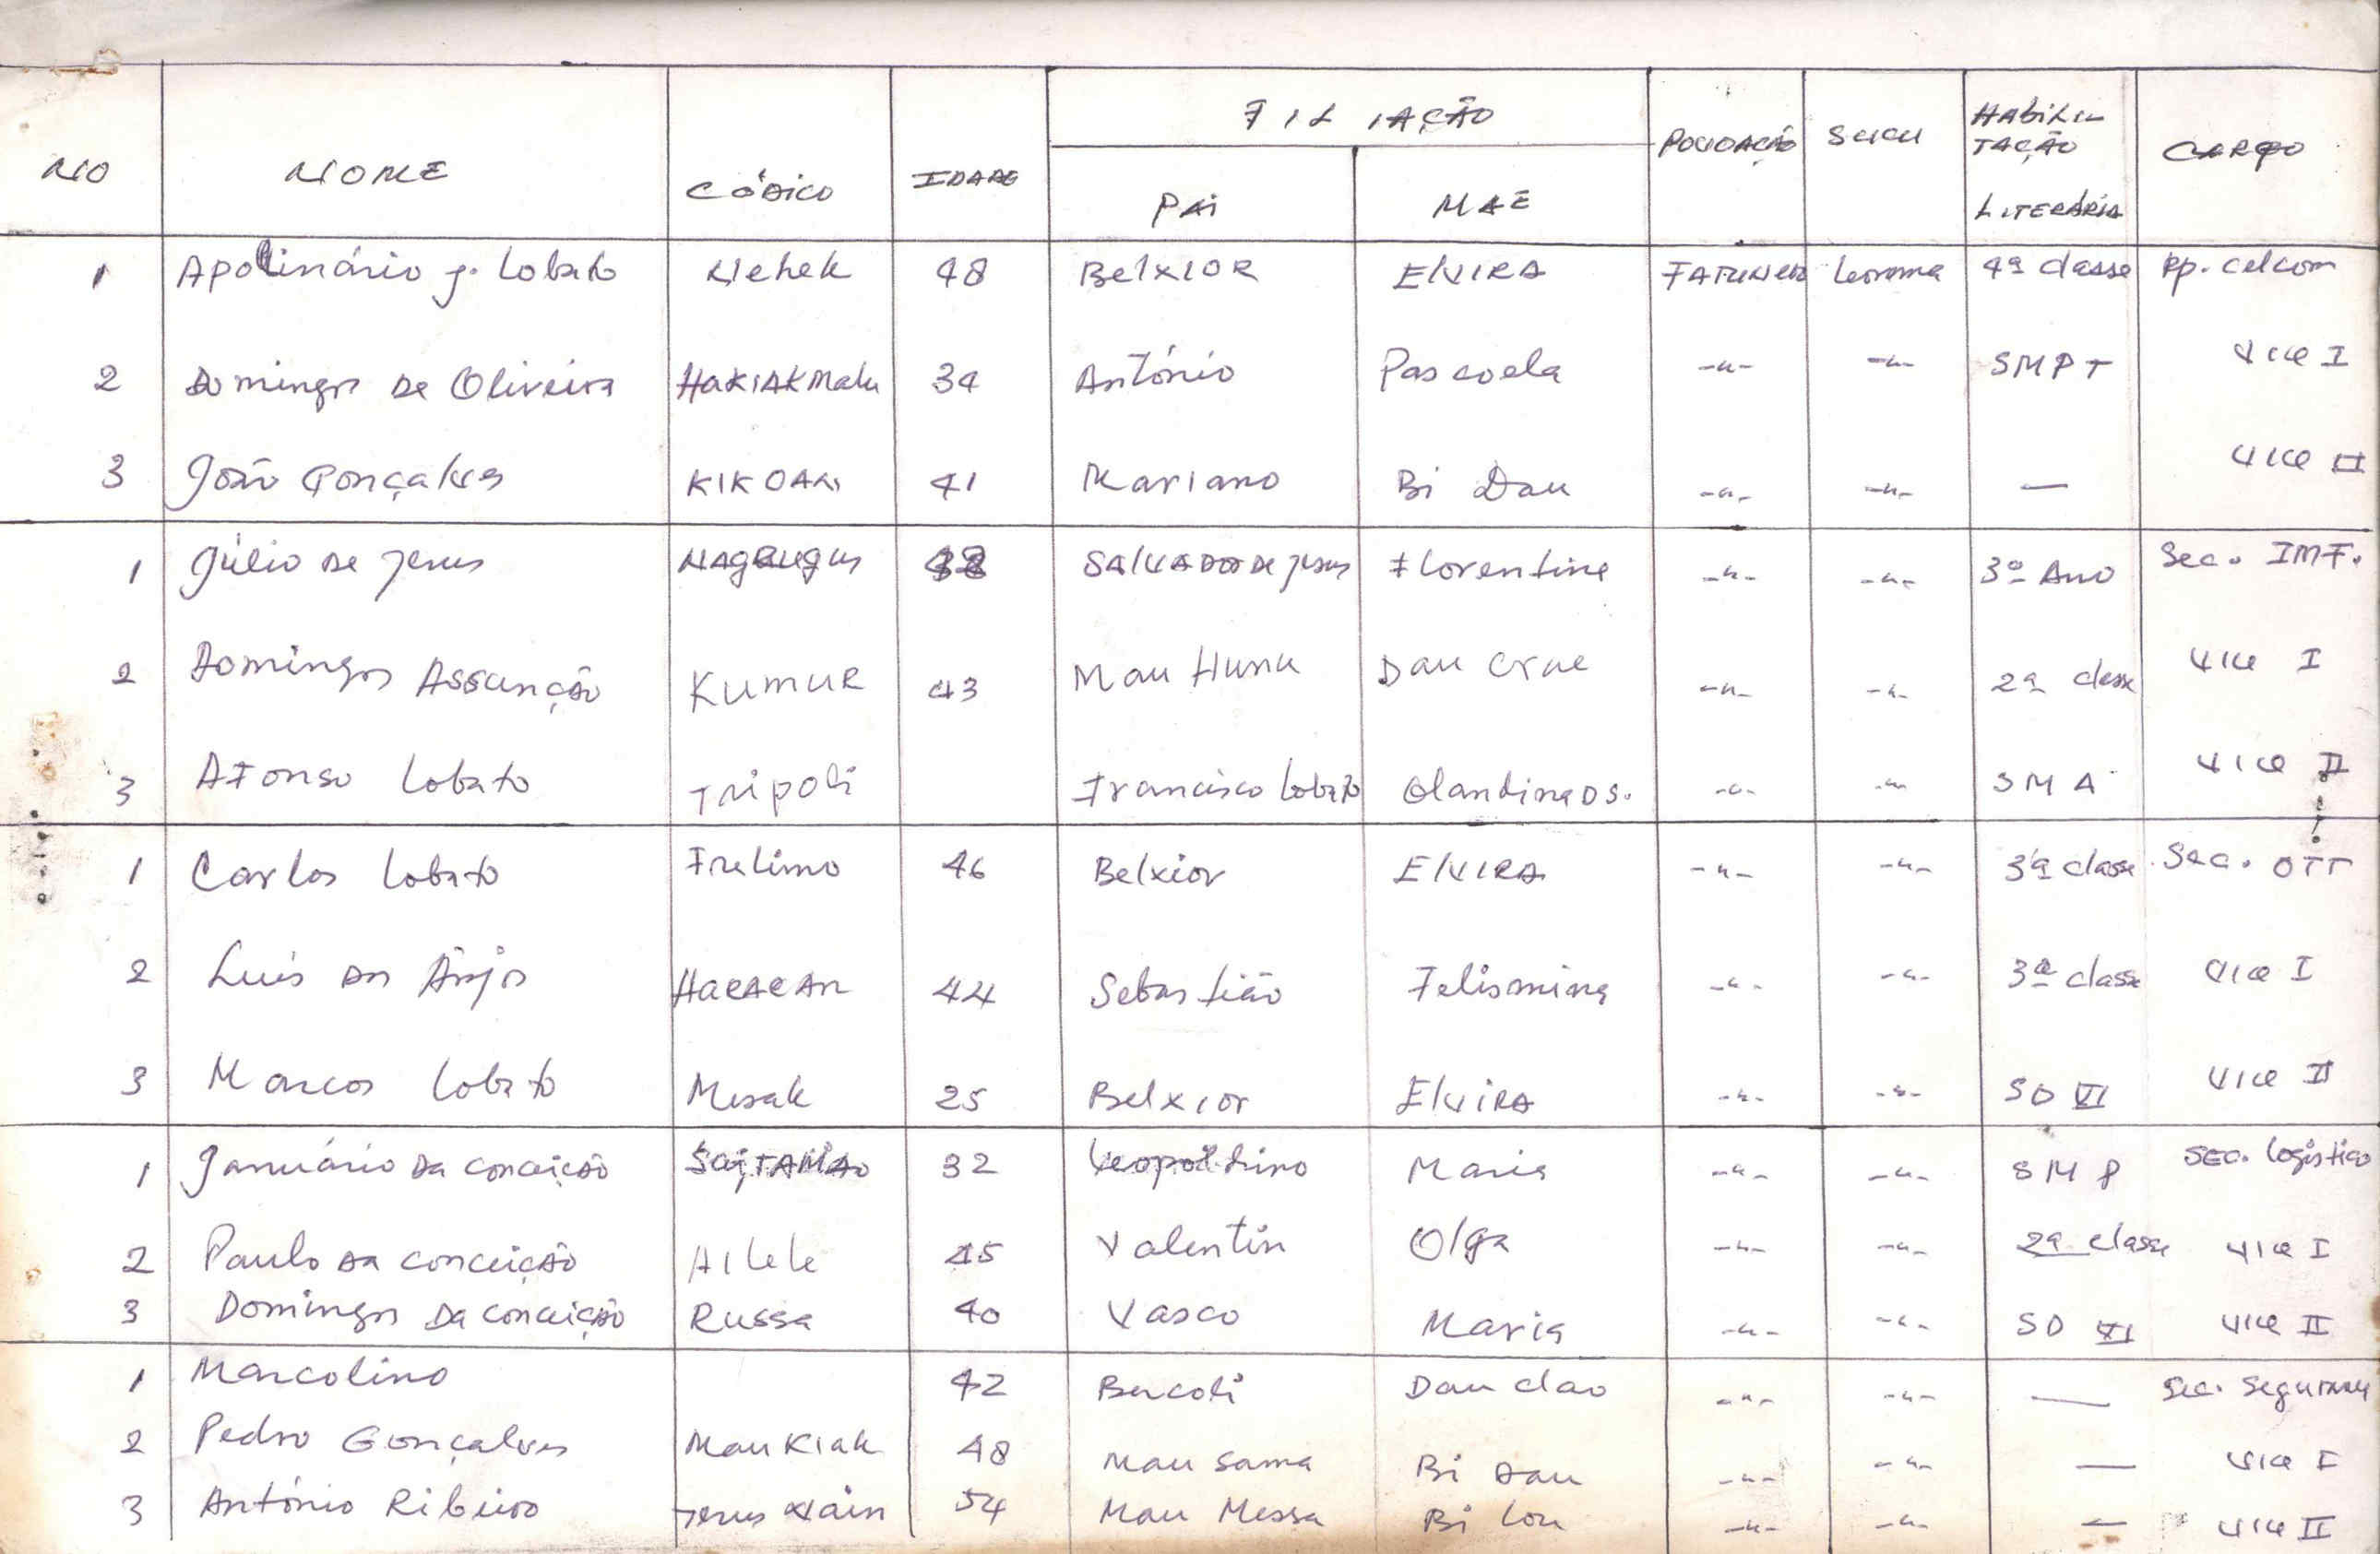 FILIAÇÃO
NO NOME CÓDICO IDADE PAI MAE POVOAÇÃO SUCU HABILITAÇÃO LITERÁRIA CARGO
1 Apolinário J. Lobato Nehek 48 Belxior Elvira Leorema 4ª classe Rp. celcom
2 Domingos De Oliveira HAKIAKMalu 34 António Pascoela -"- -"- SMPT Vice I
3 João Gonçalves KIKOAN 41 Mariano Bi Dau -"- -"- — Vice II
1 Júlio De Jesus Salvador De Jesus Florentina -"- -"- 3º Ano Sec. IMF.
2 Domingos Assunção KUMUR 43 Mau Hunu Dau Crue -"- -"- 2ª classe Vice I
3 Afonso Lobato Tripoli Francisco Lobato Olandina DS. -"- -"- SMA Vice II
1 Carlos Lobato Frelimo 46 Belxior Elvira -"- -"- 3ª classe Sec. OTT
2 Luis dos Anjos 44 Sebastião Felismina -"- -"- 3ª classe Vice I
3 Marcos Lobato Mesak 25 Belxior Elvira -"- -"- SD VI Vice II
1 Januário Da Conceição 32 Leopoldino Maria -"- -"- SMP Sec. Logística
2 Paulo Da Conceição Ailele 45 Valentin Olga -"- -"- 2ª classe Vice I
3 Domingos Da Conceição Russa 40 Vasco Maria -"- -"- SD VI Vice II
1 Marcolino 42 Bercoli Dau Clao -"- -"- — Sec. Segurança
2 Pedro Gonçalves Mau Kiak 48 Mau Sama Bi Dau -"- -"- — Vice I
3 António Ribeiro 54 Mau Messa Bi Lou -"- -"- — Vice II